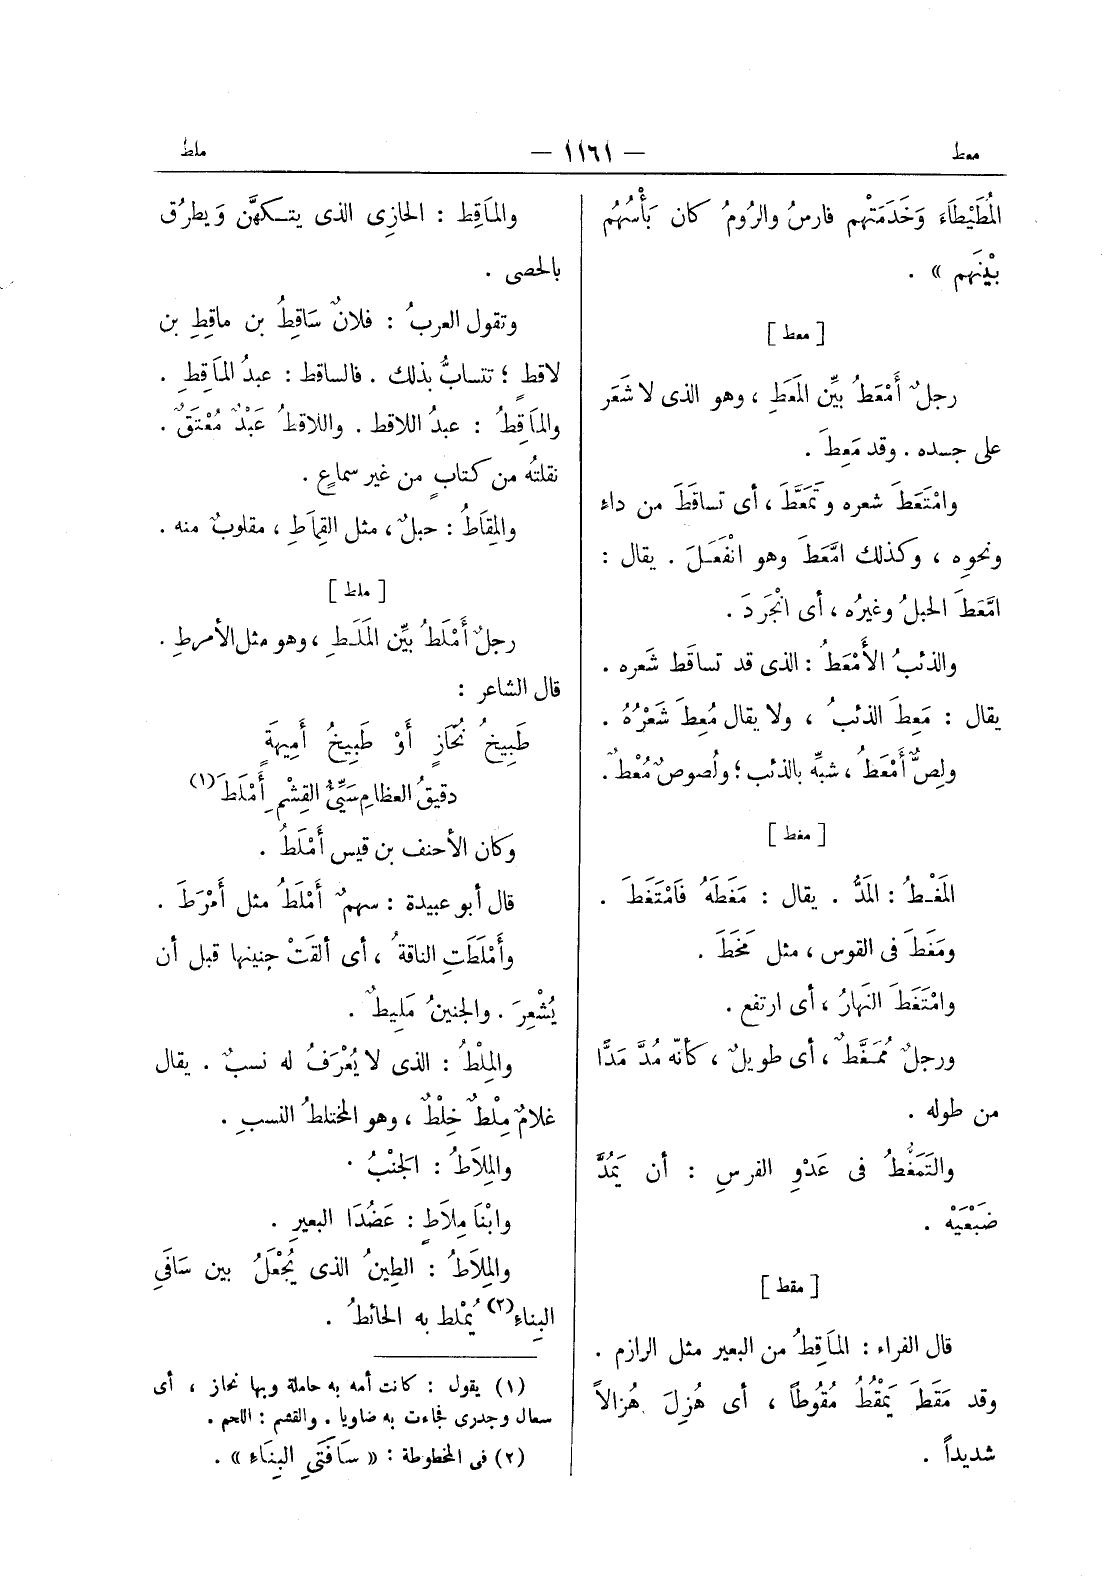 معط
— ١١٦١ —
ملط
المُطَيْطَاءَ وَخَدَمَتْهم فارسُ والرُومُ كان بَأْسُهُم
بَيْنَهم » .
[ معط ]
رجلٌ أَمْعَطُ بيِّن المَعَطِ ، وهو الذى لا شَعَر
على جسده . وقد مَعِطَ .
وامْتَعَطَ شعره وتَمَعَّطَ ، أى تساقَطَ من داء
ونحوه ، وكذلك امَّعَطَ وهو انْفَعَلَ . يقال :
امَّعَطَ الحبلُ وغيرُه ، أى انْجَرَدَ .
والذئبُ الأَمْعَطُ : الذى قد تساقَط شَعره .
يقال : مَعِطَ الذئبُ ، ولا يقال مُعِطَ شَعْرُهُ .
ولِصٌّ أَمْعَطُ ، شبِّه بالذئب ؛ ولُصوصٌ مُعْطٌ .
[ مغط ]
المَغْطُ : المَدُّ . يقال : مَغَطَهُ فَامْتَغَطَ .
ومَغَطَ فى القوس ، مثل مَخَطَ .
وامْتَغَطَ النَهارُ ، أى ارتفع .
ورجلٌ مُمَغَّطٌ ، أى طويلٌ ، كأنّه مُدَّ مَدًّا
من طوله .
والتَمَغُّطُ فى عَدْوِ الفرسِ : أن يَمُدَّ
ضَبْعَيْهْ .
[ مقط ]
قال الفراء : المَاقِطُ من البعير مثل الرازم .
وقد مَقَطَ يَمْقُطُ مُقُوطاً ، أى هُزِلَ هُزالاً
شديداً .
والمَاقِط : الحازِى الذى يتكهَّن وَيطرُق
بالحصى .
وتقول العربُ : فلانٌ سَاقِطُ بن ماقِطِ بن
لاقطٍ ؛ تتسابُّ بذلك . فالساقط : عبدُ المَاقِطِ .
والمَاقِطُ : عبدُ اللاقط . واللاقطُ عَبْدٌ مُعْتَقٌ .
نقلتُه من كتابٍ من غير سماعٍ .
والمِقَاطُ : حبلٌ ، مثل القِمَاطِ ، مقلوبٌ منه .
[ ملط ]
رجلٌ أَمْلَطُ بيِّن المَلَطِ ، وهو مثل الأمرطِ .
قال الشاعر :
طَبِيخُ نُحَازٍ أَوْ طَبِيخُ أَمِيهَةٍ
دقيقُ العظامِ سَيِّئُ القِشْمِ أَمْلَطَ (١)
وكان الأحنف بن قيس أَمْلَطُ .
قال أبو عبيدة : سهمٌ أَمْلَطُ مثل أَمْرَطَ .
وأَمْلَطَتِ الناقةُ ، أى ألقَتْ جنينها قبل أن
يُشْعِرَ . والجنينُ مَلِيطٌ .
والمِلْطُ : الذى لا يُعْرَفُ له نسبٌ . يقال
غلامٌ مِلْطٌ خِلْطٌ ، وهو المختلطُ النسبِ .
والمِلَاطُ : الجَنْبُ .
وابْنَا مِلَاطٍ : عَضُدَا البعيرِ .
والمِلَاطُ : الطِينُ الذى يُجْعَلُ بين سَافَىِ
البِناءِ (٢) يُمْلط به الحائطُ .
(١) يقول : كانت أمه به حاملة وبها نحاز ، أى
سعال وجدرى فجاءت به ضاويا . والقشم : اللحم .
(٢) فى المخطوطة : « سَافَتَىِ البِنَاءِ » .